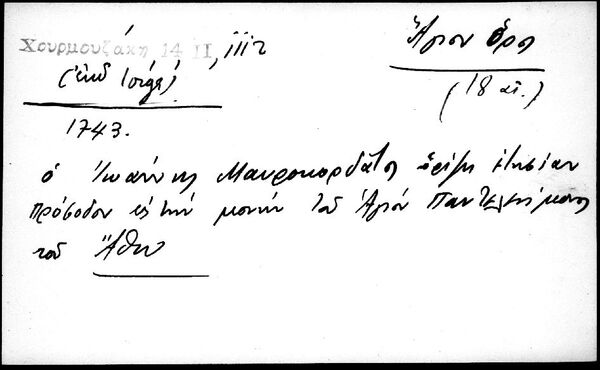 Χουρμουζάκη 14 II,
Ἅγιον Ὄρος
(18 αἰ.)
1743.
ὁ Ἰωάννης Μαυροκορδᾶτος ὁρίζει ἐτησίαν
πρόσοδον εἰς τὴν μονὴν τοῦ Ἁγίου Παντελεήμονος
τοῦ Ἄθω